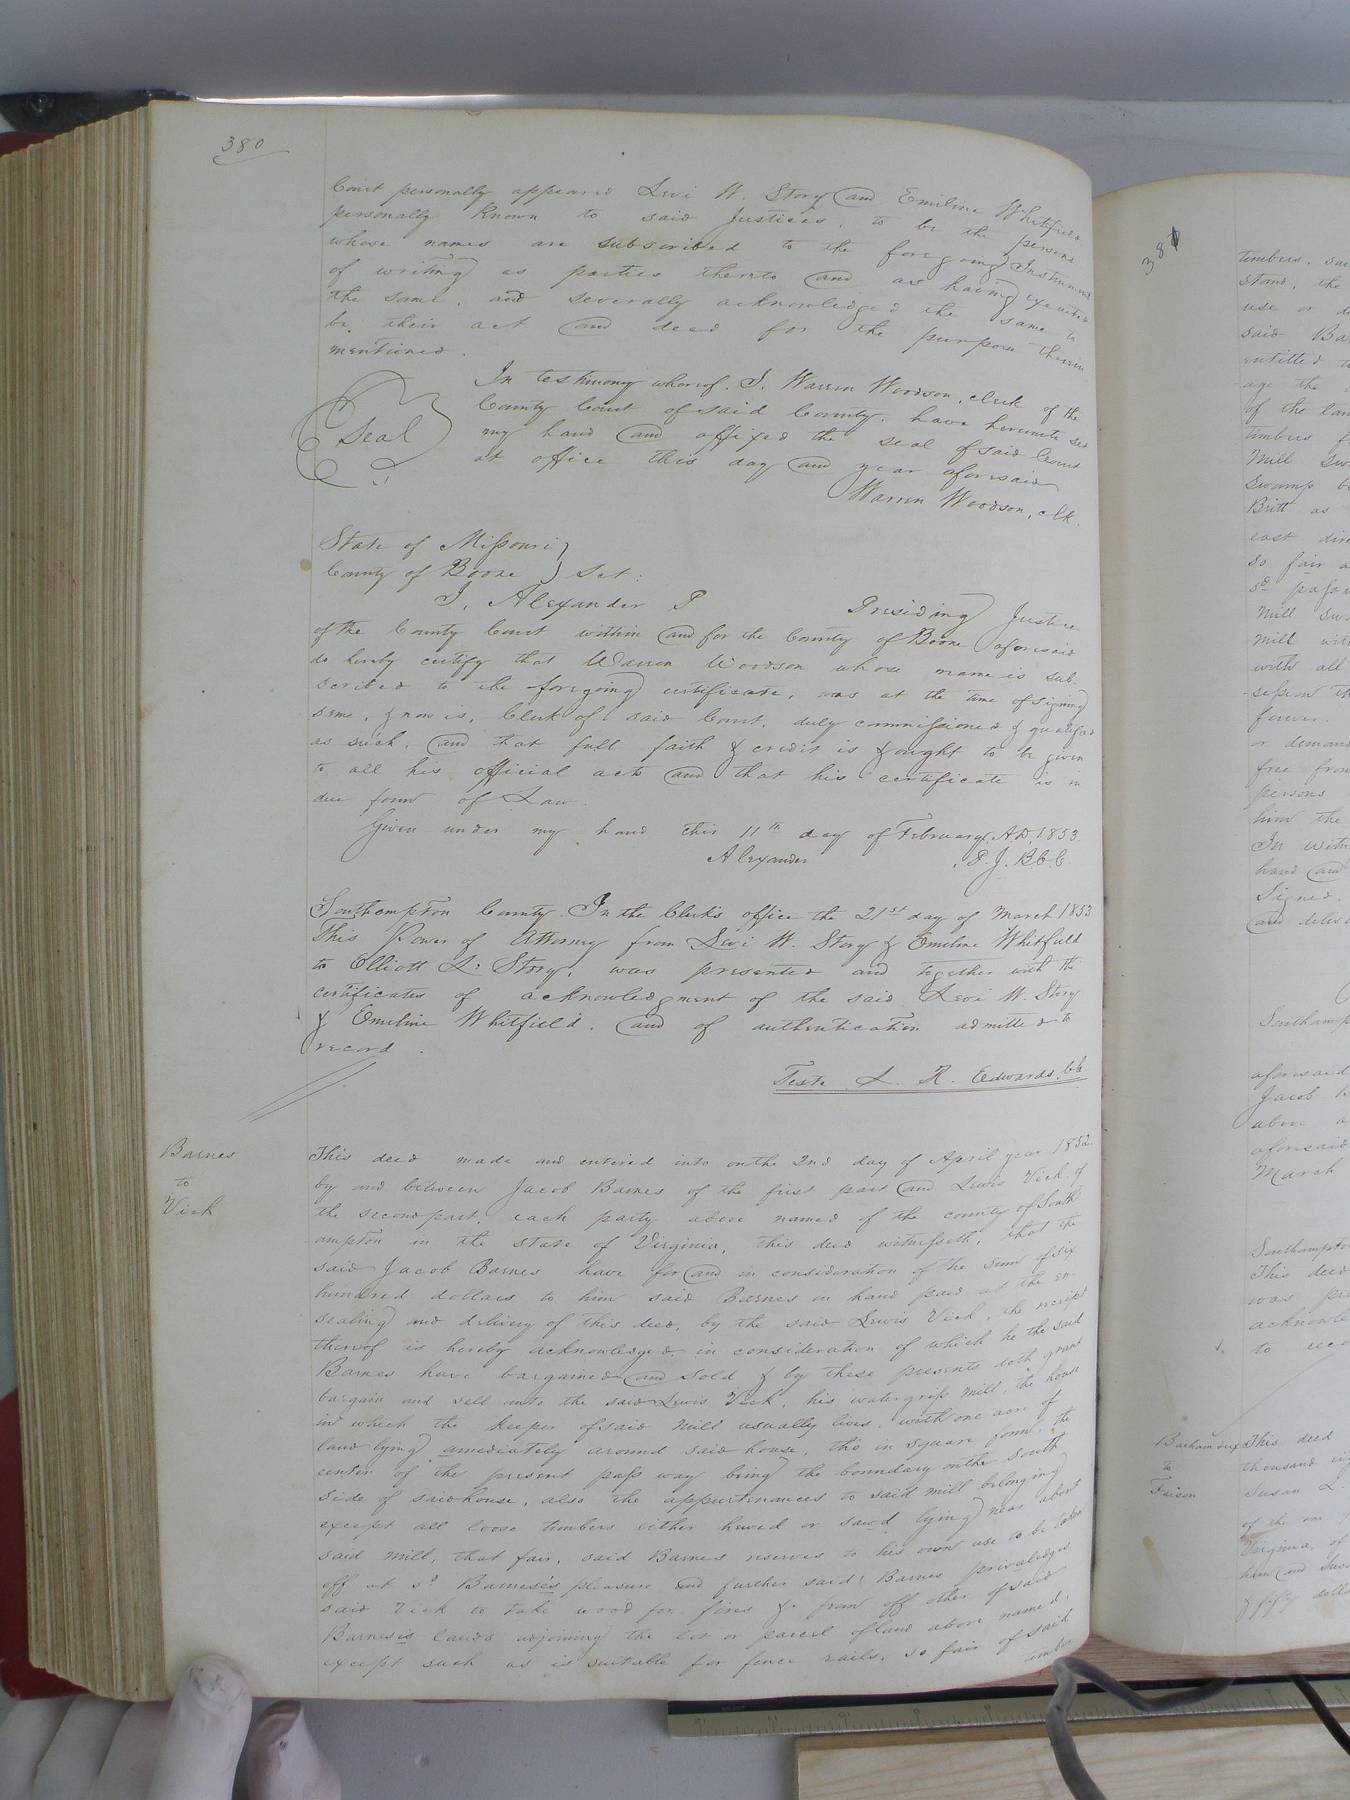 380
Court personally appeared Levi W. Story and Emiline Whitfield
personally known to said Justices, to be the persons
whose names are subscribed to the foregoing Instrument
of writing as parties thereto and as having executed
the same, and severally acknowledged the same to
be their act and deed for the purposes therein
mentioned.
Seal
In testimony whereof. I, Warren Woodson, clerk of the
County Court of said County, have hereunto set
my hand and affixed the seal of said Court
at office this day and year aforesaid
Warren Woodson, clk.
State of Missouri
County of Boone } Sct:
I, Alexander P Presiding Justice
of the County Court within and for the County of Boone aforesaid
do hereby certify that Warren Woodson whose name is sub-
scribed to the foregoing certificate, was at the time of signing
same, & now is, Clerk of said Court, duly commissioned & qualified
as such, and that full faith & credit is & ought to be given
to all his official acts and that his certificate is in
due form of Law.
Given under my hand this 11th day of February, A.D. 1853.
Alexander , P. J. B.C.C.
Southampton County. In the Clerk's office the 21st day of March 1853
This Power of Attorney from Levi W. Story & Emeline Whitfield
to Elliott L. Story, was presented and together with the
certificates of acknowledgment of the said Levi W. Story
& Emeline Whitfield, and of authentication admitted to
record.
Teste L. R. Edwards, clk
Barnes
to
Vick
This deed made and entered into on the 2nd day of April year 1852.
by and between Jacob Barnes of the first part and Lewis Vick, of
the second part, each party above named of the county of South
ampton in the state of Virginia, this deed witnesseth, that the
said Jacob Barnes have for and in consideration of the sum of six
hundred dollars to him said Barnes in hand paid at the en-
sealing and delivery of this deed, by the said Lewis Vick, the receipt
thereof is hereby acknowledged in consideration of which he the said
Barnes have bargained and sold & by these presents doth grant
bargain and sell unto the said Lewis Vick, his water grist mill, the house
in which the keeper of said Mill usually lives, with one acre of
land lying amediately around said house, this in square form, the
center of the present pass way being the boundary on the south
side of said house, also the appurtenances to said mill belonging
except all loose timbers either hewed or sawd lying near about
said mill, that fair, said Barnes reserves to his own use to be taken
off at sd Barneses pleasure and further said Barnes privaledges
said Vick to take wood for fires & from off other of said
Barnesis lands adjoining the lot or parcel of land above named,
except such as is suitable for fence rails, so fair of said
timber
381
stand, the
use or
said
entitled
age the
of the
timbers
Mill
swamp
Britt as
east
so fair
Mill
Mill with
with all
forever.
or
free from
persons
him the
In
hand and
Signed,
and
aforesaid
Jacob
above
aforesaid
March
Southampton
This deed
was
to
Barham
to
Faison
This deed
thousand
Susan L.
of the one
Virginia, of
& fifty